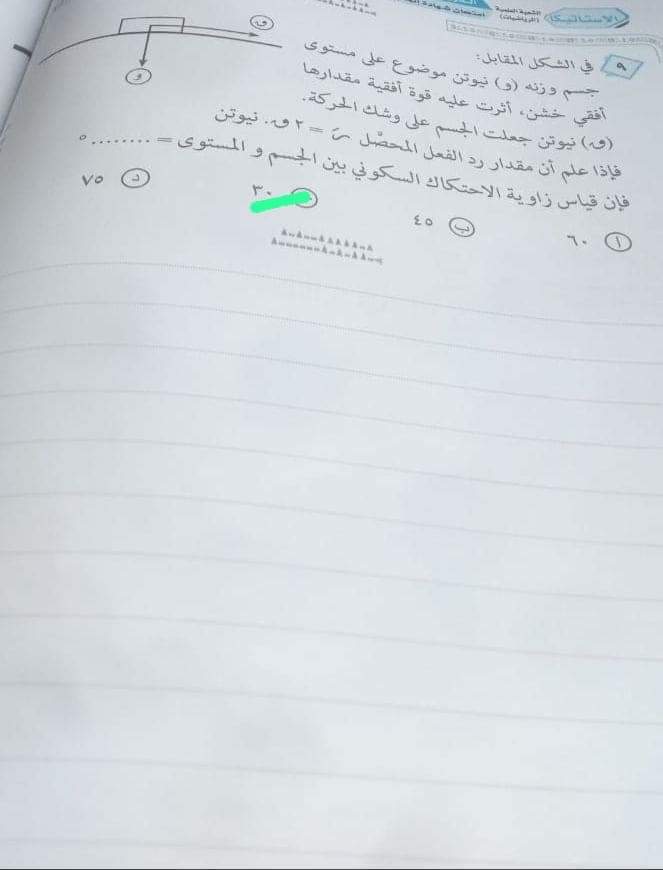 الاستاتيكا
الشعبة العلمية
(الرياضيات)
٩ في الشكل المقابل:
جسم وزنه (و) نيوتن موضوع على مستوى
أفقي خشن، أثرت عليه قوة أفقية مقدارها
(ق) نيوتن جعلت الجسم على وشك الحركة.
فإذا علم أن مقدار رد الفعل المحصل رَ = ٢ ق نيوتن
فإن قياس زاوية الاحتكاك السكوني بين الجسم و المستوى = ......... °
أ ٦٠
ب ٤٥
٣٠
د ٧٥
ق
و